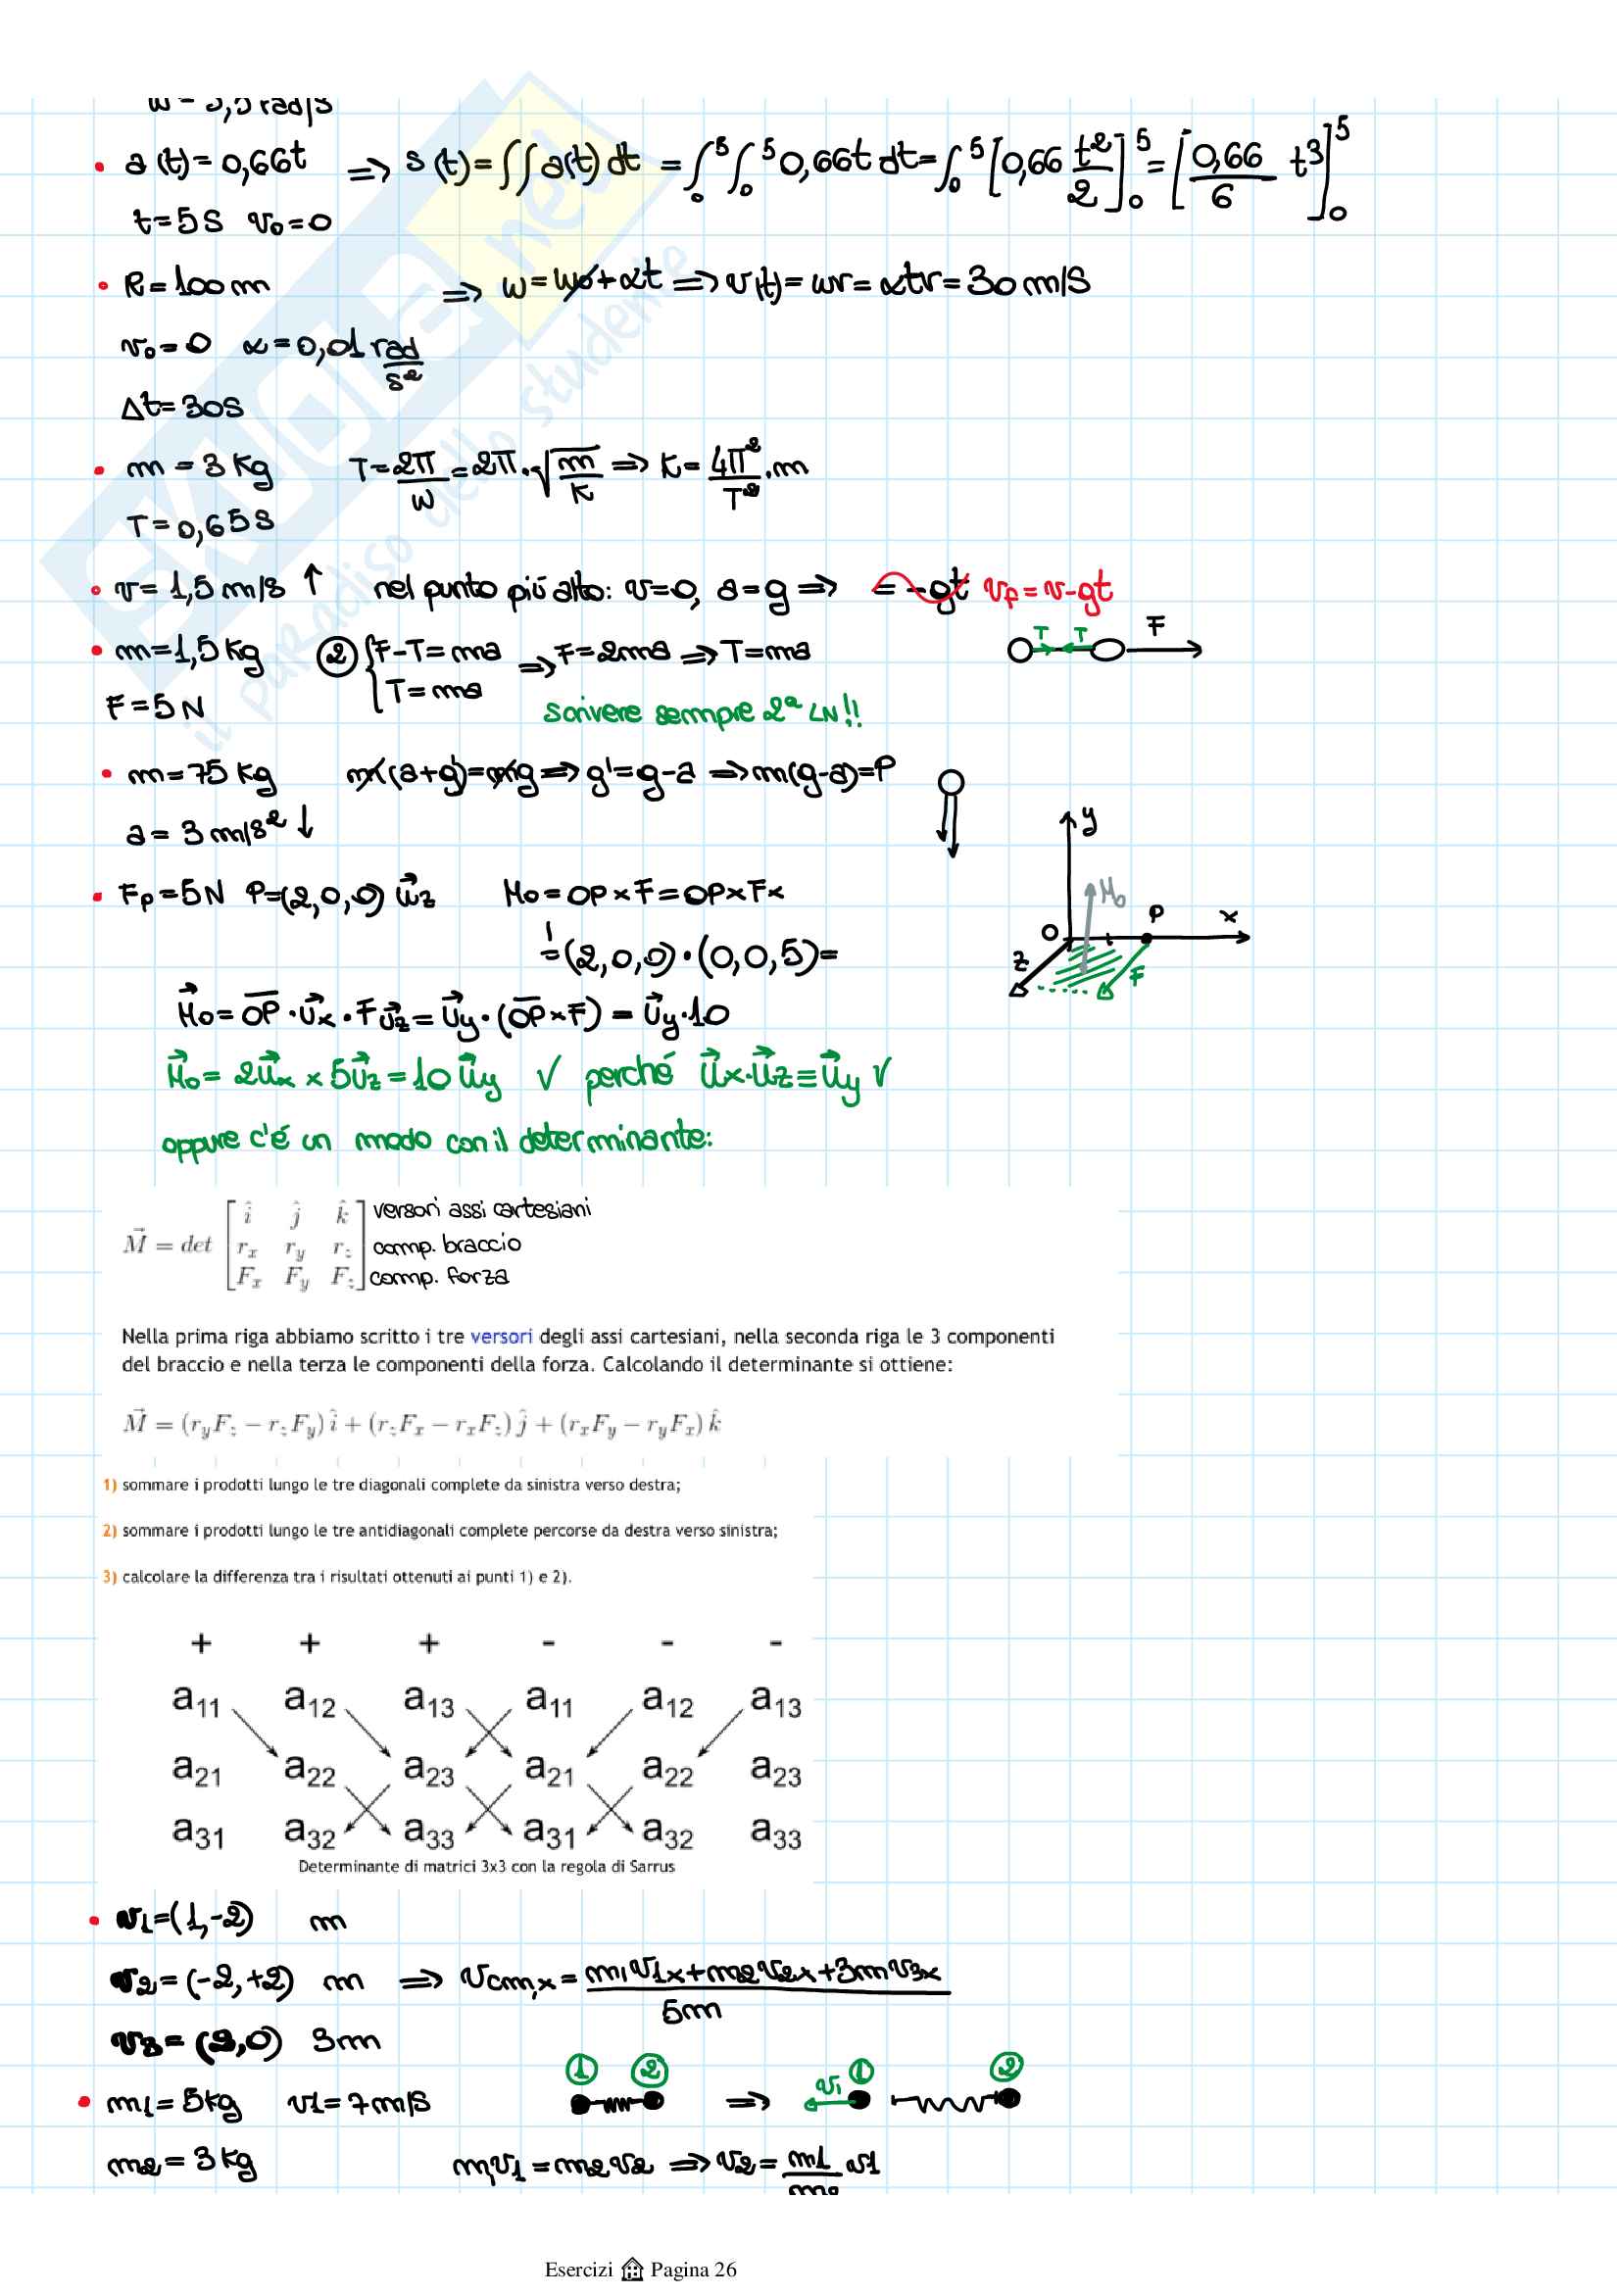 w = 5,5 rad/s
• a(t) = 0,66t ⇒ s(t) = ∫∫ a(t) dt = ∫₀⁵∫₀⁵ 0,66t dt = ∫₀⁵ [0,66 t²/2]₀⁵ = [0,66/6 t³]₀⁵
t = 5s v₀ = 0
• R = 100 m ⇒ w = w₀ + αt ⇒ v(t) = wr = αtr = 30 m/s
v₀ = 0 α = 0,01 rad/s²
Δt = 30s
• m = 3 Kg T = 2π/w = 2π·√(m/K) ⇒ K = 4π²/T² · m
T = 0,65s
• v = 1,5 m/s ↑ nel punto più alto: v=0, a=g ⇒ = -gt vf = v-gt
• m = 1,5 Kg ② { F-T = ma ⇒ F = 2ma ⇒ T = ma T T F
T = ma
F = 5 N
scrivere sempre 2ª LN!!
• m = 75 Kg m(a+g') = mg ⇒ g' = g-a ⇒ m(g-a) = P
a = 3 m/s² ↓
y
• Fp = 5N P = (2,0,0) u⃗z Mo = OP × F = OP × Fx
Mo P x O z F
= (2,0,0)·(0,0,5) =
M⃗o = OP·u⃗x·F u⃗z = u⃗y·(OP×F) = u⃗y·10
M⃗o = 2u⃗x × 5u⃗z = 10 u⃗y ✓ perché u⃗x·u⃗z = u⃗y ✓
oppure c'é un modo con il determinante:
M⃗ = det [ î ĵ k̂ ] versori assi cartesiani
rx ry rz comp. braccio
Fx Fy Fz comp. forza
Nella prima riga abbiamo scritto i tre versori degli assi cartesiani, nella seconda riga le 3 componenti
del braccio e nella terza le componenti della forza. Calcolando il determinante si ottiene:
M⃗ = (ryFz − rzFy) î + (rzFx − rxFz) ĵ + (rxFy − ryFx) k̂
1) sommare i prodotti lungo le tre diagonali complete da sinistra verso destra;
2) sommare i prodotti lungo le tre antidiagonali complete percorse da destra verso sinistra;
3) calcolare la differenza tra i risultati ottenuti ai punti 1) e 2).
+ + + - - -
a11 a12 a13 a11 a12 a13
a21 a22 a23 a21 a22 a23
a31 a32 a33 a31 a32 a33
Determinante di matrici 3x3 con la regola di Sarrus
• v1 = (1,-2) m
v2 = (-2,+2) m ⇒ vcm,x = (m1v1x + m2v2x + 3mv3x)/5m
v3 = (2,0) 3m
① ② v1 ① ②
• m1 = 5kg v1 = 7 m/s ⇒
m2 = 3 Kg m1v1 = m2v2 ⇒ v2 = m1/m2 v1
Esercizi Pagina 26
SKUOLA.net
il paradiso dello studente